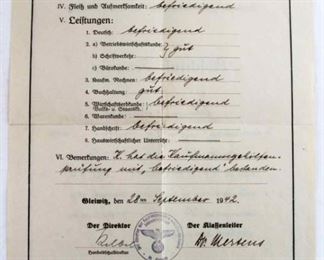 IV. Fleiß und Aufmerksamkeit: befriedigend
V. Leistungen:
1. Deutsch: befriedigend
2. a) Betriebswirtschaftskunde: gut
b) Schriftverkehr:
c) Bürokunde:
3. Kaufm. Rechnen: befriedigend
4. Buchhaltung: gut
5. Wirtschaftserdkunde: befriedigend
6. Warenkunde:
7. Handschrift: befriedigend
8. Hauswirtschaftlicher Unterricht:
VI. Bemerkungen: K. hat die Kaufmannsgehilfen-
prüfung mit „befriedigend" bestanden.
Gleiwitz, den 28ten September 1942.
Der Direktor Der Klassenleiter
Dr. Mertens